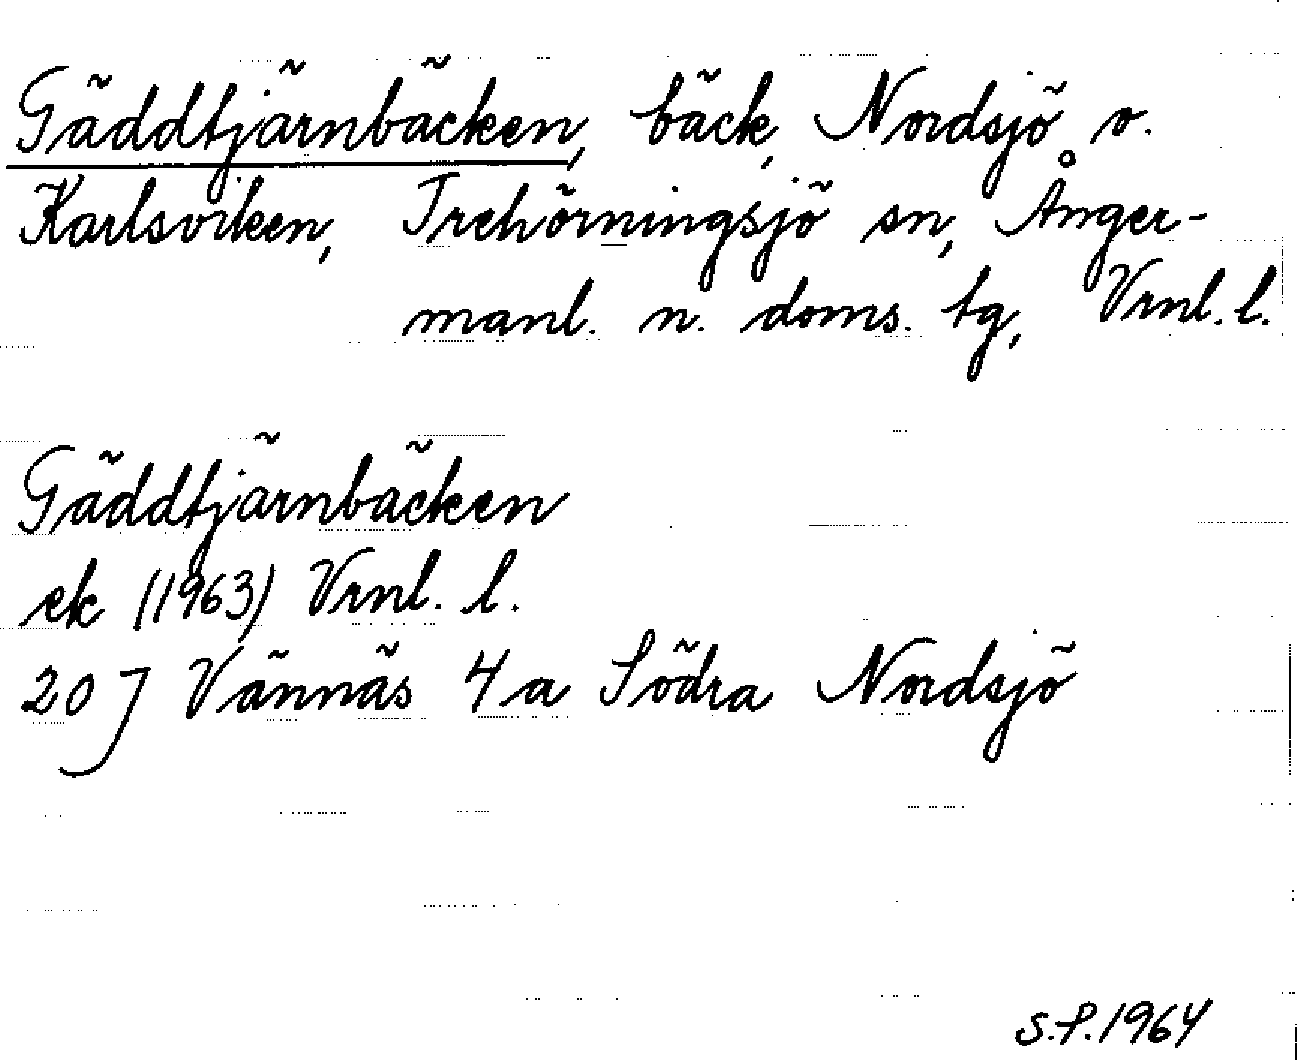 Gäddtjärnbäcken, bäck, Nordsjö o.
Karlsviken, Trehörningsjö sn, Ånger-
manl. n. doms. tg, Vrnl. l.
Gäddtjärnbäcken
ek (1963) Vrnl. l.
20 J Vännäs 4 a Södra Nordsjö
S.P. 1964